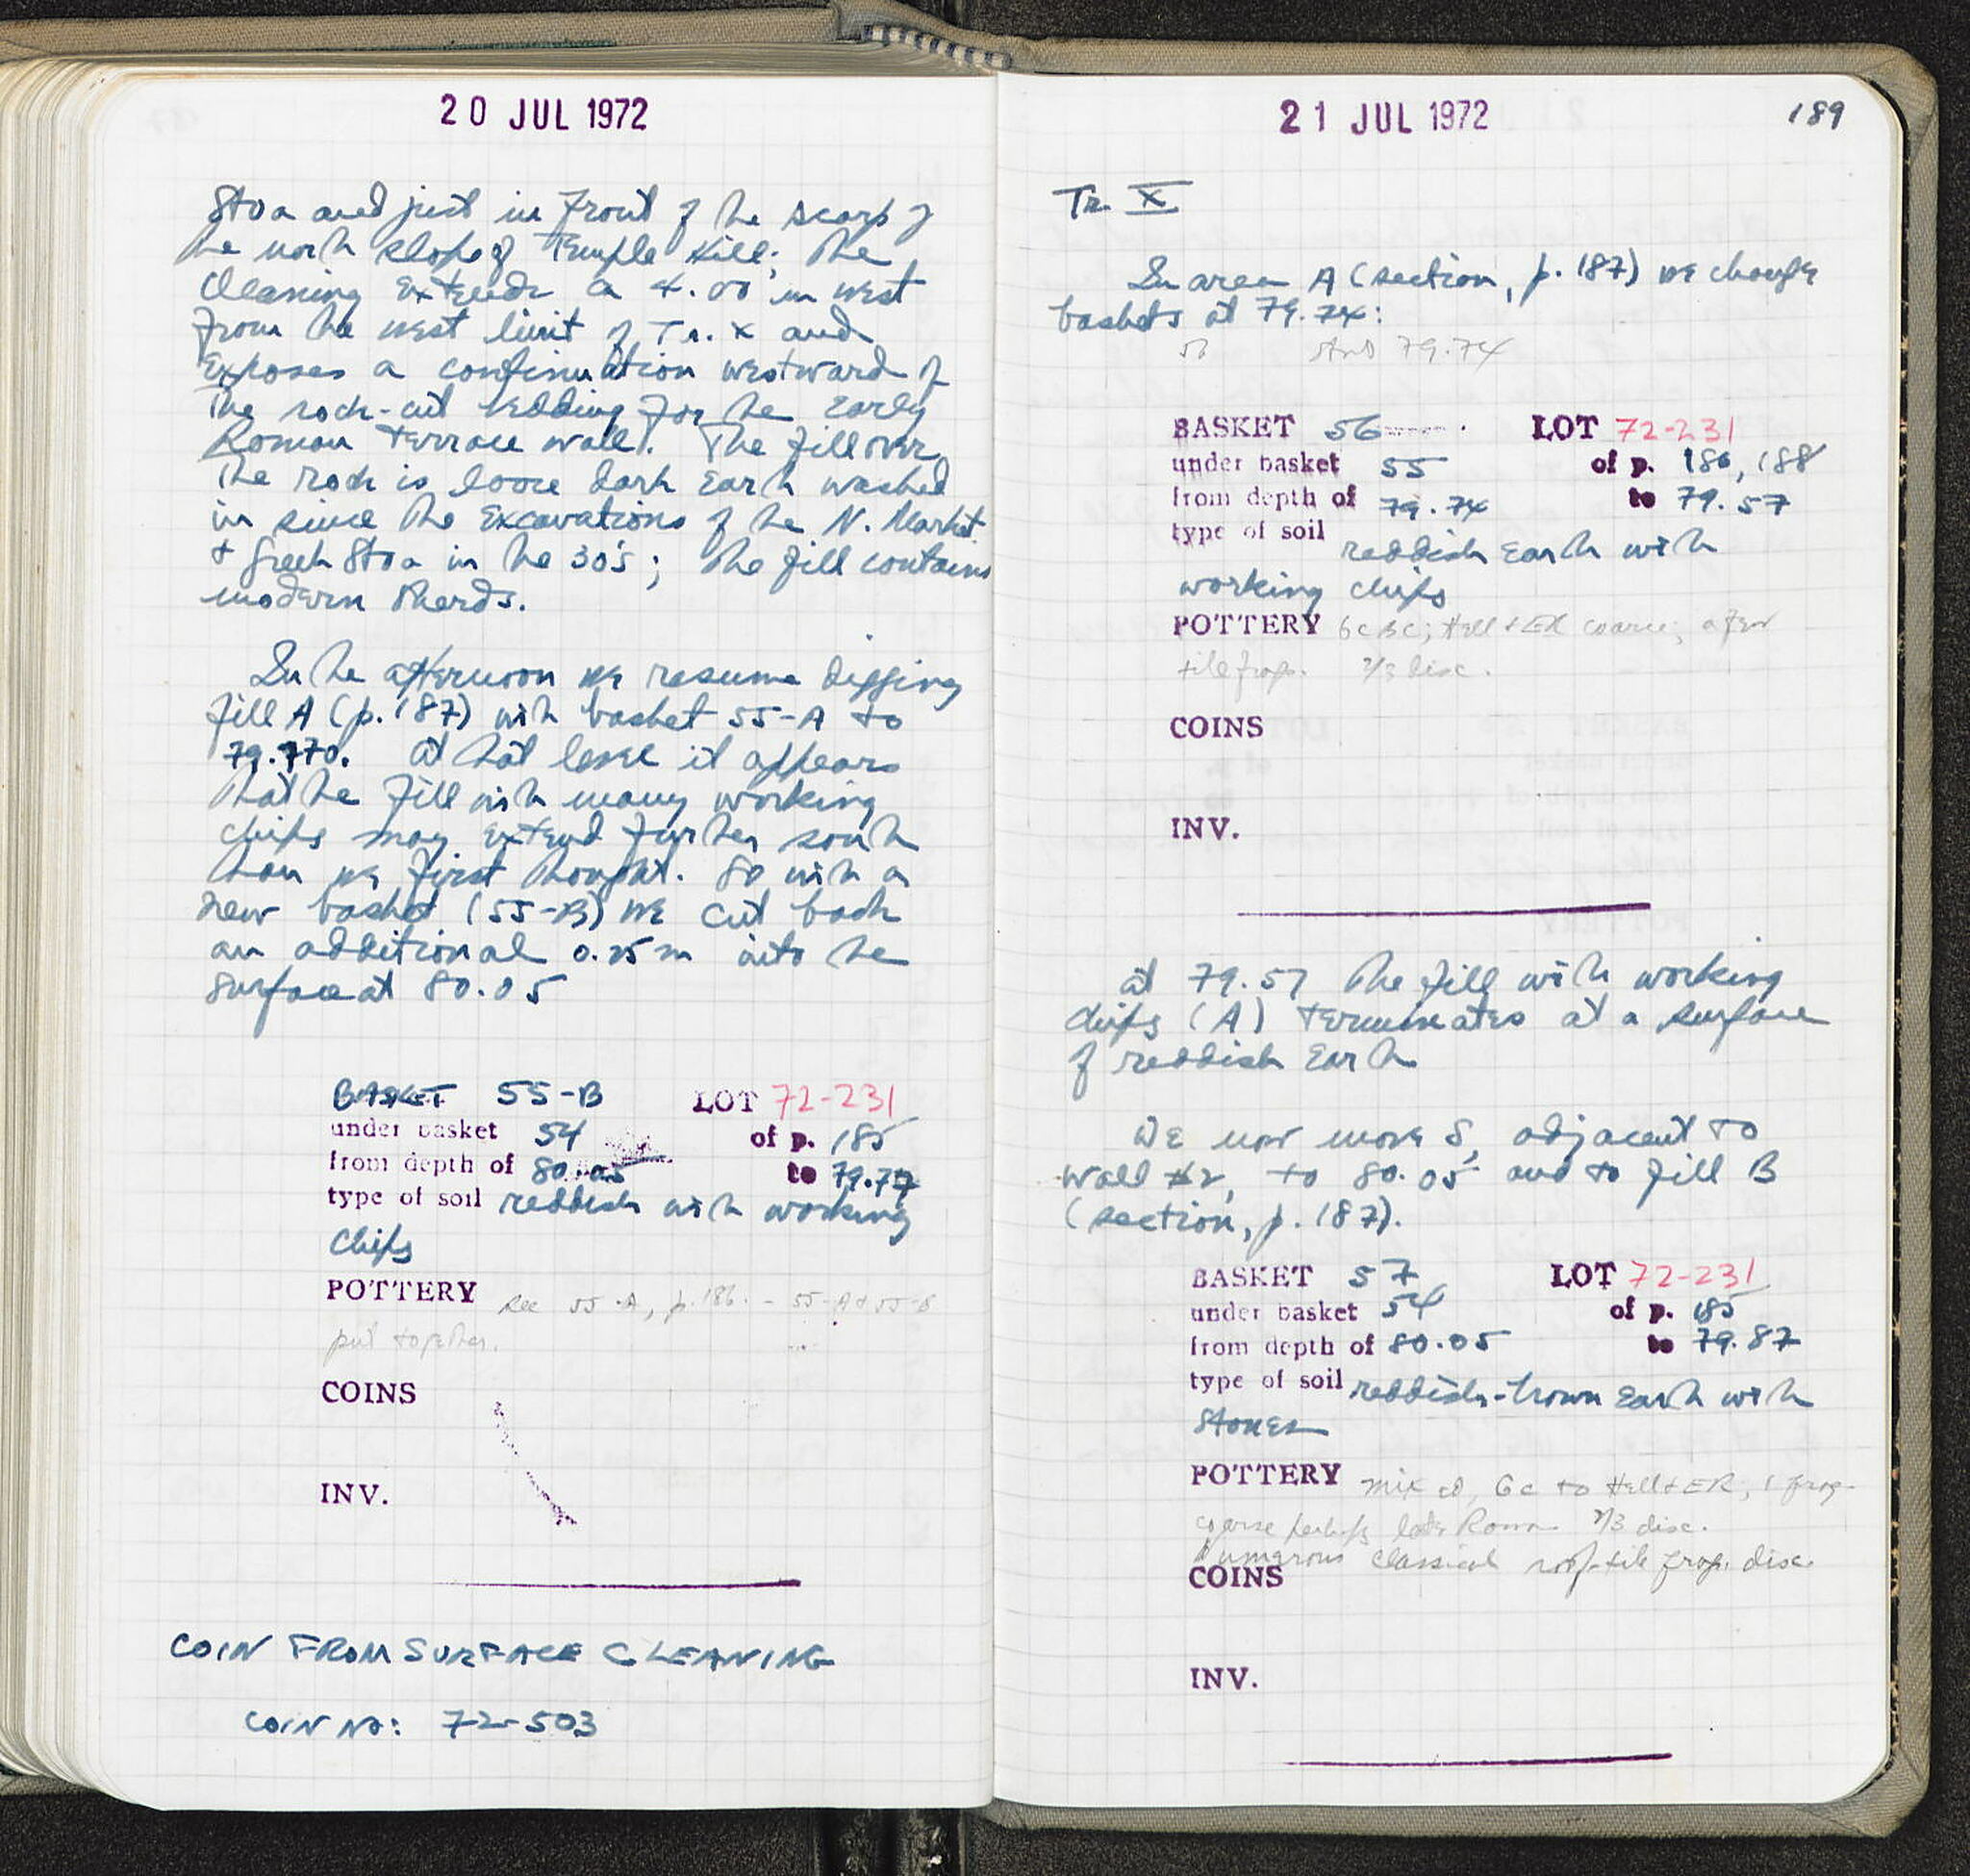 20 JUL 1972
Stoa and just in front of the scarp of
the north slope of Temple Hill; the
cleaning extends ca 4.00 m west
from the west limit of Tr. X and
exposes a continuation westward of
the rock-cut bedding for the Early
Roman terrace wall. The fill over
the rock is loose dark earth washed
in since the Excavations of the N. Market
+ Greek Stoa in the 30's; the fill contains
modern sherds.
In the afternoon we resume digging
fill A (p. 187) with basket 55-A to
79.770. at that level it appears
that the fill with many working
chips may extend further south
than we first thought. So with a
new basket (55-B) we cut back
an additional 0.25 m into the
surface at 80.05
BASKET 55-B LOT 72-231
under basket 54 of p. 185
from depth of 80.05 to 79.77
type of soil reddish with working
chips
POTTERY see 55-A, p. 186. - 55-A + 55-B
put together.
COINS
INV.
COIN FROM SURFACE CLEANING
COIN NO: 72-503
21 JUL 1972
189
Tr. X
In area A (section, p. 187) we change
baskets at 79.74:
56 79.74
BASKET 56 LOT 72-231
under basket 55 of p. 186, 188
from depth of 79.74 to 79.57
type of soil reddish earth with
working chips
POTTERY 6c BC; Hell + ER coarse; a few
tile frags. 2/3 disc.
COINS
INV.
at 79.57 the fill with working
chips (A) terminates at a surface
of reddish earth
We now move S, adjacent to
wall #2, to 80.05 and to fill B
(section, p. 187).
BASKET 57 LOT 72-231
under basket 54 of p. 185
from depth of 80.05 to 79.87
type of soil reddish-brown earth with
stones
POTTERY mixed, 6c to Hell + ER, 1 frag.
coarse perhaps late Roman 2/3 disc.
Numerous classical roof-tile frags. disc.
COINS
INV.